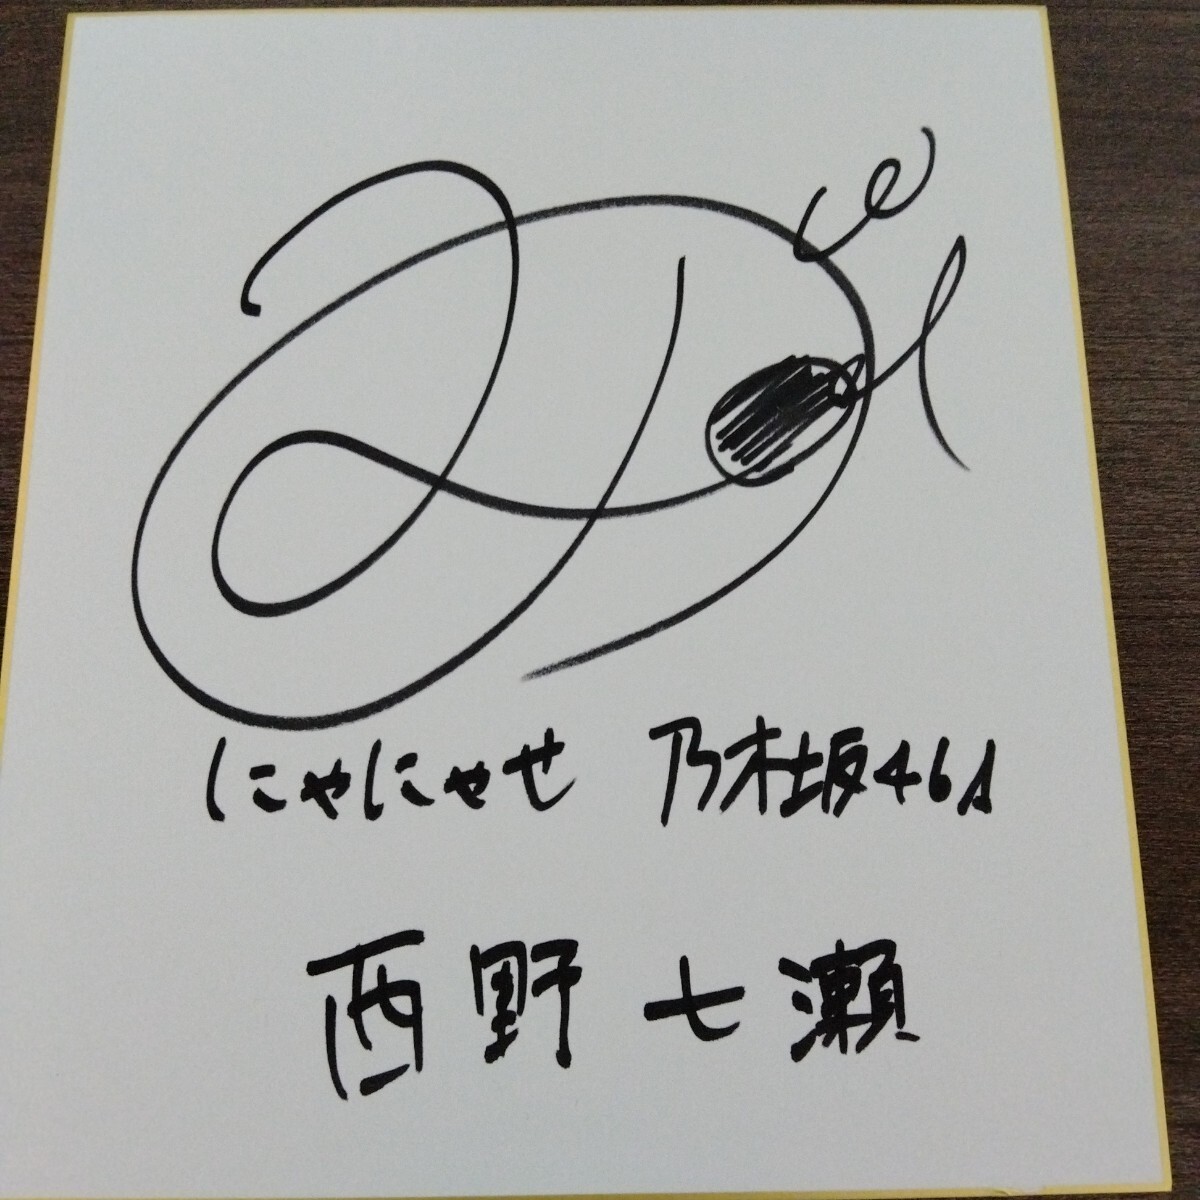 にゃにゃせ 乃木坂46
西野七瀬